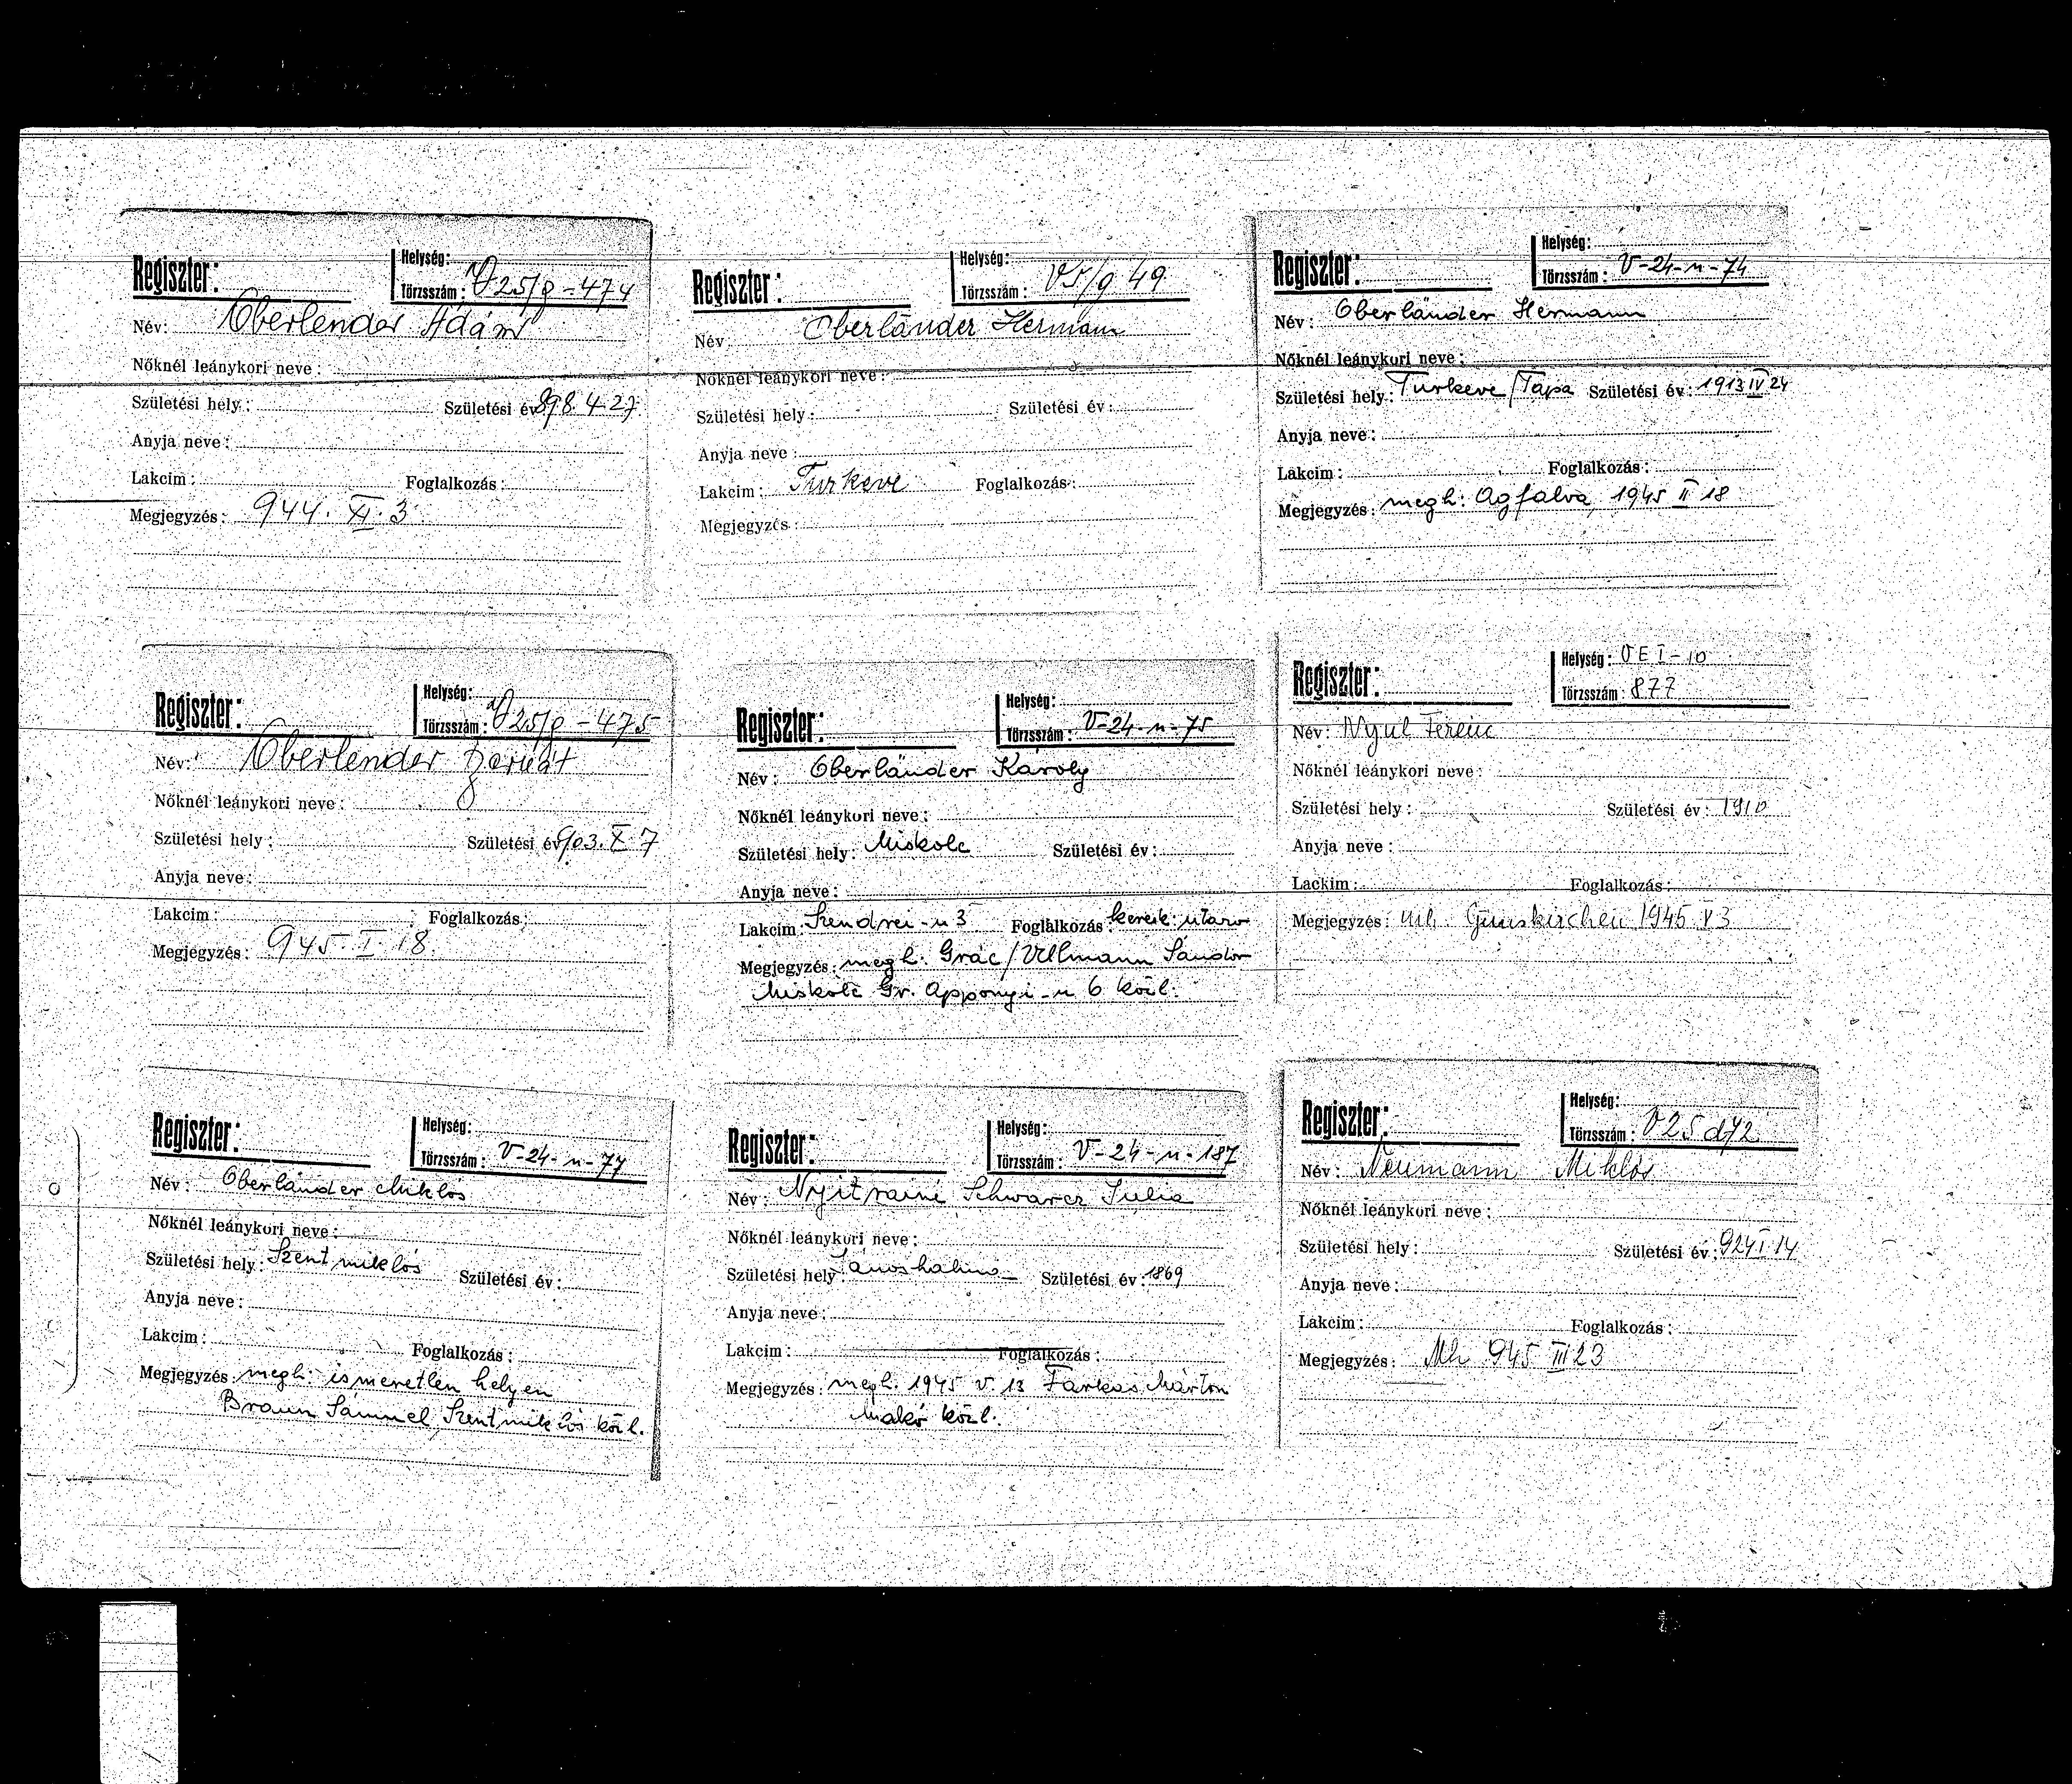 Regiszter:
Helység:
Törzsszám: V25/g-474
Név: Oberlender Ádám
Nőknél leánykori neve:
Születési hely: Születési év: 898.4.27
Anyja neve:
Lakcim: Foglalkozás:
Megjegyzés: 944. XI. 3
Regiszter:
Helység:
Törzsszám: V5/g 49
Név: Oberländer Hermann
Nőknél leánykori neve:
Születési hely: Születési év:
Anyja neve:
Lakcim: Turkeve Foglalkozás:
Megjegyzés:
Regiszter:
Helység:
Törzsszám: V-24-n-74
Név: Oberländer Hermann
Nőknél leánykori neve:
Születési hely: Turkeve/Tapa Születési év: 1913 IV 24
Anyja neve:
Lakcim: Foglalkozás:
Megjegyzés: megh: Agfalva 1945 II 18
Regiszter:
Helység:
Törzsszám: V25/g-475
Név: Oberlender
Nőknél leánykori neve:
Születési hely: Születési év: 903. X. 7
Anyja neve:
Lakcim: Foglalkozás:
Megjegyzés: 945 I. 18.
Regiszter:
Helység:
Törzsszám: V-24-n-75
Név: Oberländer Károly
Nőknél leánykori neve:
Születési hely: Miskolc Születési év:
Anyja neve:
Lakcim: Szendrei-u 3 Foglalkozás: keresk. utazo
Megjegyzés: megh. Grác/Ullmann Sándor
Miskolc Gr. Apponyi-u 6 közl.
Regiszter:
Helység: VEI-10
Törzsszám: 877
Név: Nyul Ferenc
Nőknél leánykori neve:
Születési hely: Születési év: 1910
Anyja neve:
Lackim: Foglalkozás:
Megjegyzés: mh. Gunskirchen 1945. V 3
Regiszter:
Helység:
Törzsszám: V-24-n-77
Név: Oberländer Miklós
Nőknél leánykori neve:
Születési hely: Szentmiklós Születési év:
Anyja neve:
Lakcim: Foglalkozás:
Megjegyzés: megh: ismeretlen helyen
Braun Sámuel Szentmiklós közl.
Regiszter:
Helység:
Törzsszám: V-24-n-187
Név: Nyitrainé Schwarcz Julia
Nőknél leánykori neve:
Születési hely: Jánoshalma Születési év: 1869
Anyja neve:
Lakcim: Foglalkozás:
Megjegyzés: megh. 1945 V. 13 Farkas Márton
Makó közl.
Regiszter:
Helység:
Törzsszám: V25 d/2
Név: Neumann Miklós
Nőknél leánykori neve:
Születési hely: Születési év: 924 I 14
Anyja neve:
Lakcim: Foglalkozás:
Megjegyzés: Mh 945 III 23